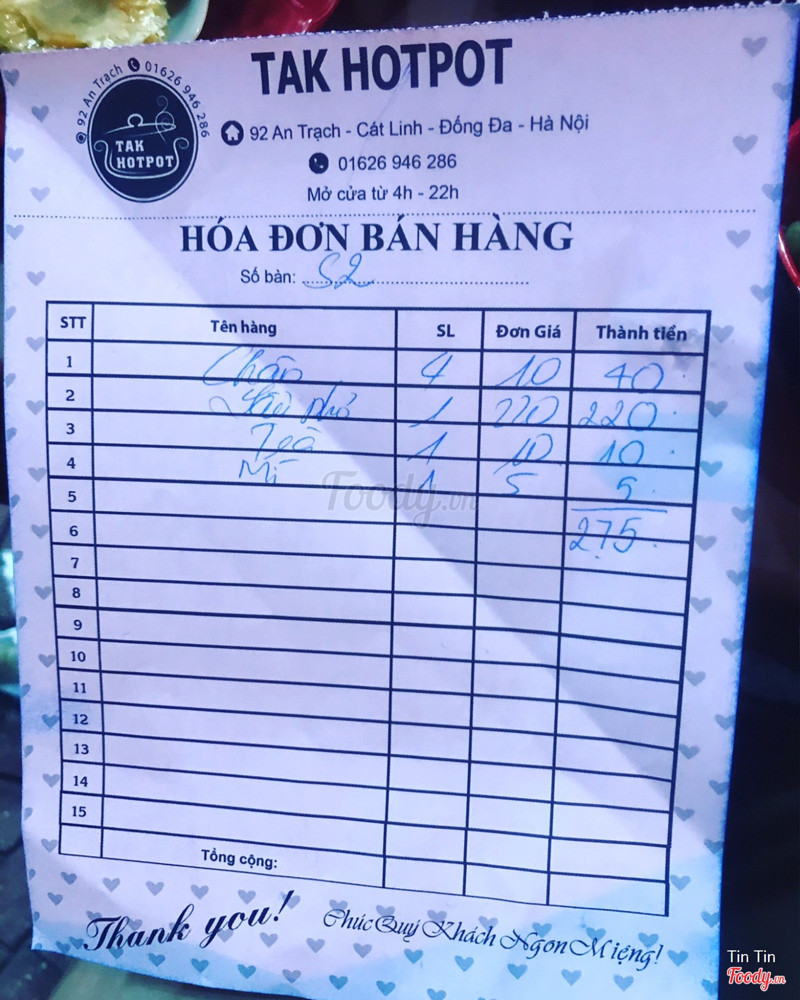 92 An Trạch 01626 946 286
TAK HOTPOT
TAK HOTPOT
92 An Trạch - Cát Linh - Đống Đa - Hà Nội
01626 946 286
Mở cửa từ 4h - 22h
HÓA ĐƠN BÁN HÀNG
Số bàn: S2
STT Tên hàng SL Đơn Giá Thành tiền
1 Chân 4 10 40
2 1 220 220
3 1 10 10
4 Mì 1 5 5
5
6 275
7
8
9
10
11
12
13
14
15
Tổng cộng:
Thank you! Chúc Quý Khách Ngon Miệng!
Foody.vn
Tin Tin
Foody.vn